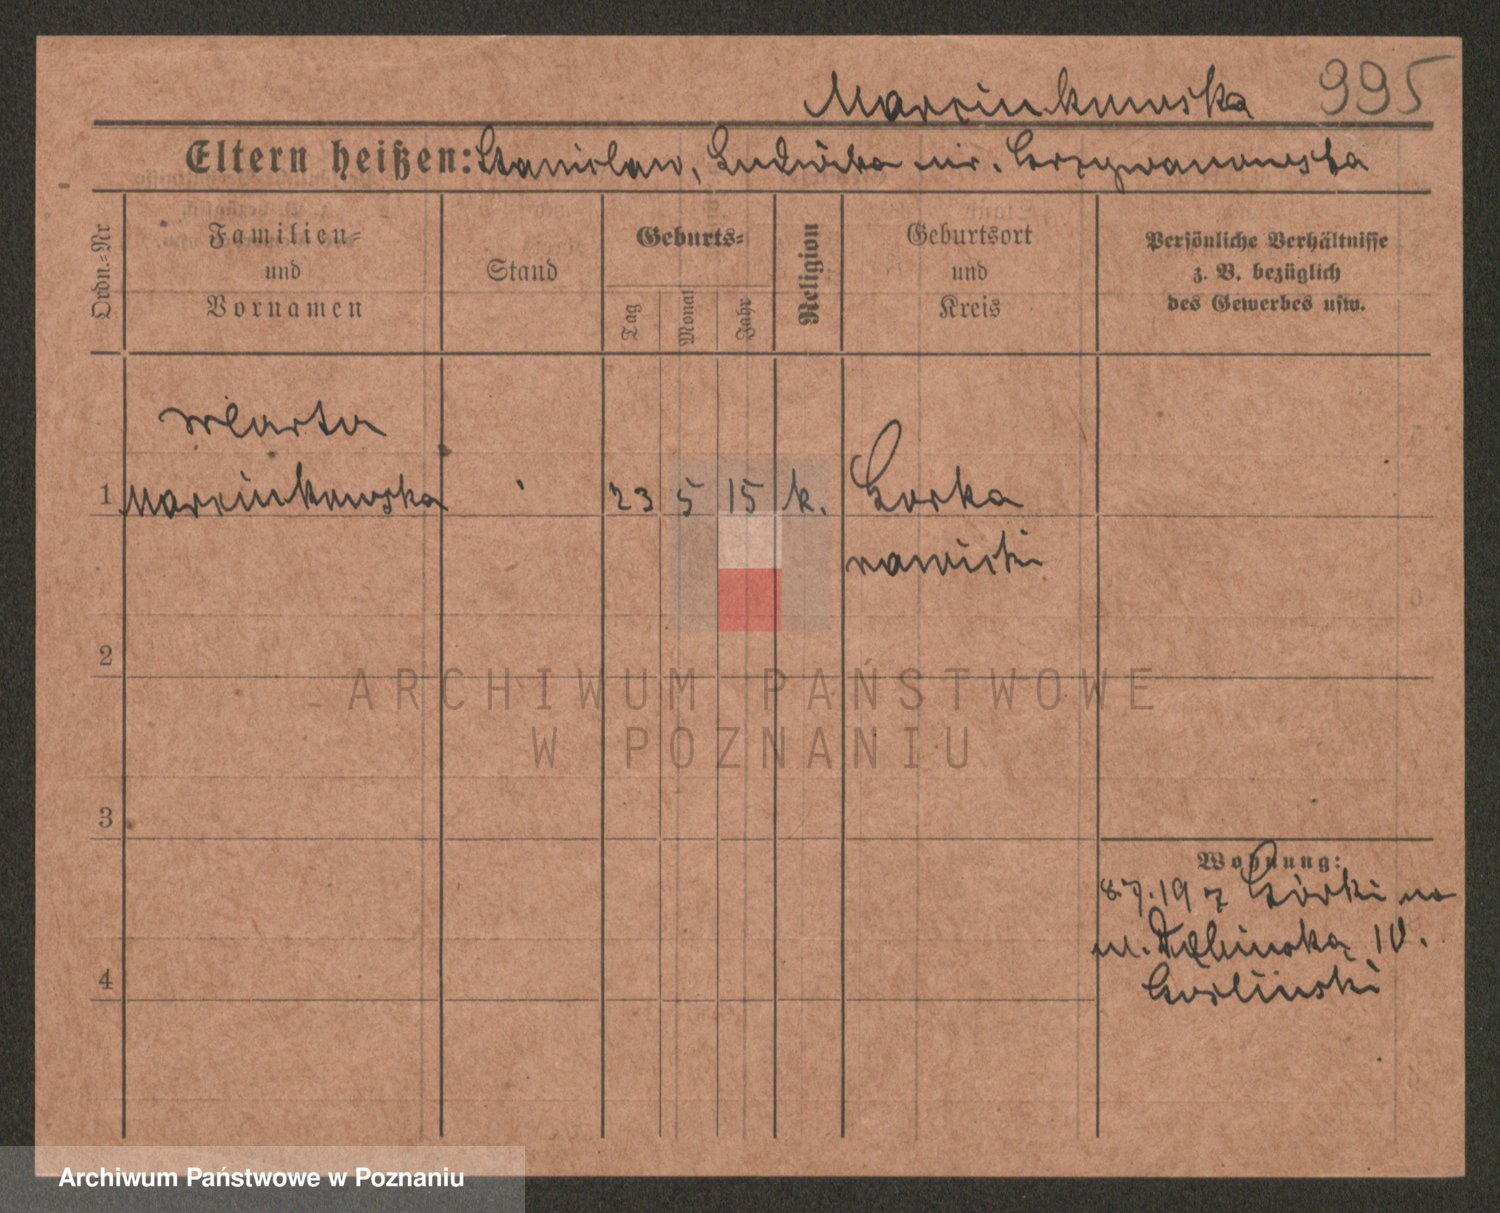 Marcinkowska 995
Eltern heißen: Stanisław, Ludwika ur.
Ordn.-Nr
Familien-
und
Vornamen
Stand
Geburts-
Tag
Monat
Jahr
Religion
Geburtsort
und
Kreis
Persönliche Verhältnisse
z. B. bezüglich
des Gewerbes usw.
Marta
1 Marcinkowska 23 5 15 k. Gorka
rawicki
2
ARCHIWUM PAŃSTWOWE
W POZNANIU
3
Wohnung:
8.7.19 z Górki na
ul. Dębinska 10.
4
Archiwum Państwowe w Poznaniu